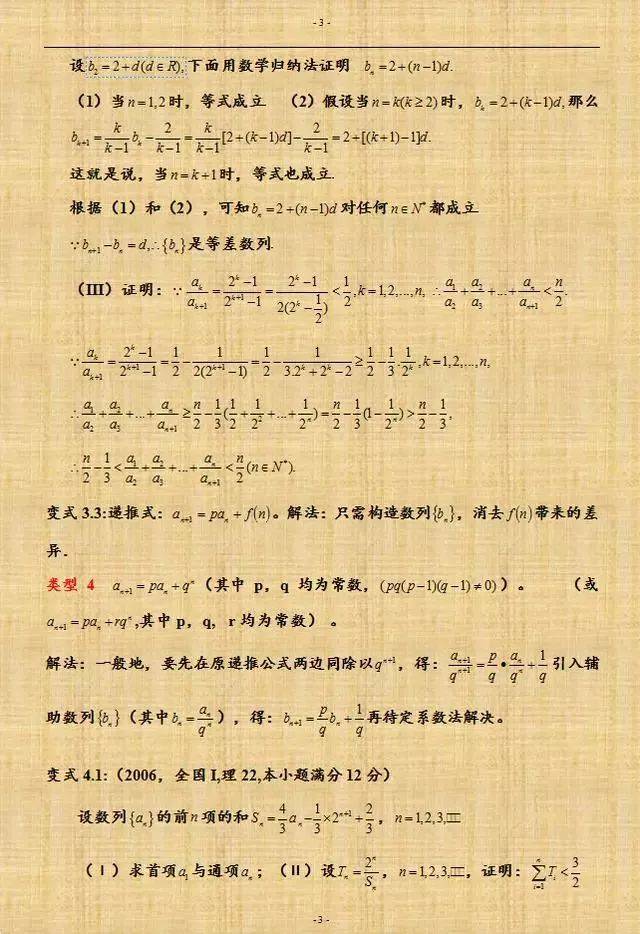 - 3 -
设b₂=2+d(d∈R),下面用数学归纳法证明 bₙ=2+(n−1)d.
(1)当n=1,2时，等式成立 (2)假设当n=k(k≥2)时，bₖ=2+(k−1)d,那么
bₖ₊₁=k/(k−1) bₖ−2/(k−1)=k/(k−1)[2+(k−1)d]−2/(k−1)=2+[(k+1)−1]d.
这就是说，当n=k+1时，等式也成立.
根据(1)和(2)，可知bₙ=2+(n−1)d对任何n∈N*都成立
∵bₙ₊₁−bₙ=d,∴{bₙ}是等差数列.
(III)证明：∵aₖ/aₖ₊₁=(2ᵏ−1)/(2ᵏ⁺¹−1)=(2ᵏ−1)/(2(2ᵏ−1/2))<1/2,k=1,2,...,n, ∴a₁/a₂+a₂/a₃+...+aₙ/aₙ₊₁<n/2.
∵aₖ/aₖ₊₁=(2ᵏ−1)/(2ᵏ⁺¹−1)=1/2−1/(2(2ᵏ⁺¹−1))=1/2−1/(3.2ᵏ+2ᵏ−2)≥1/2−1/3·1/2ᵏ,k=1,2,...,n,
∴a₁/a₂+a₂/a₃+...+aₙ/aₙ₊₁≥n/2−1/3(1/2+1/2²+...+1/2ⁿ)=n/2−1/3(1−1/2ⁿ)>n/2−1/3,
∴n/2−1/3<a₁/a₂+a₂/a₃+...+aₙ/aₙ₊₁<n/2(n∈N*).
变式 3.3:递推式：aₙ₊₁=paₙ+f(n)。解法：只需构造数列{bₙ}，消去f(n)带来的差
异．
类型 4 aₙ₊₁=paₙ+qⁿ（其中 p，q 均为常数，(pq(p−1)(q−1)≠0)）。 （或
aₙ₊₁=paₙ+rqⁿ,其中 p，q, r 均为常数）。
解法：一般地，要先在原递推公式两边同除以qⁿ⁺¹，得：aₙ₊₁/qⁿ⁺¹=p/q•aₙ/qⁿ+1/q引入辅
助数列{bₙ}（其中bₙ=aₙ/qⁿ），得：bₙ₊₁=p/q bₙ+1/q再待定系数法解决。
变式 4.1:（2006，全国 I,理 22,本小题满分 12 分）
设数列{aₙ}的前n项的和Sₙ=4/3 aₙ−1/3×2ⁿ⁺¹+2/3，n=1,2,3,□□
（Ⅰ）求首项a₁与通项aₙ；（Ⅱ）设Tₙ=2ⁿ/Sₙ，n=1,2,3,□□，证明：∑ⁿᵢ₌₁Tᵢ<3/2
- 3 -